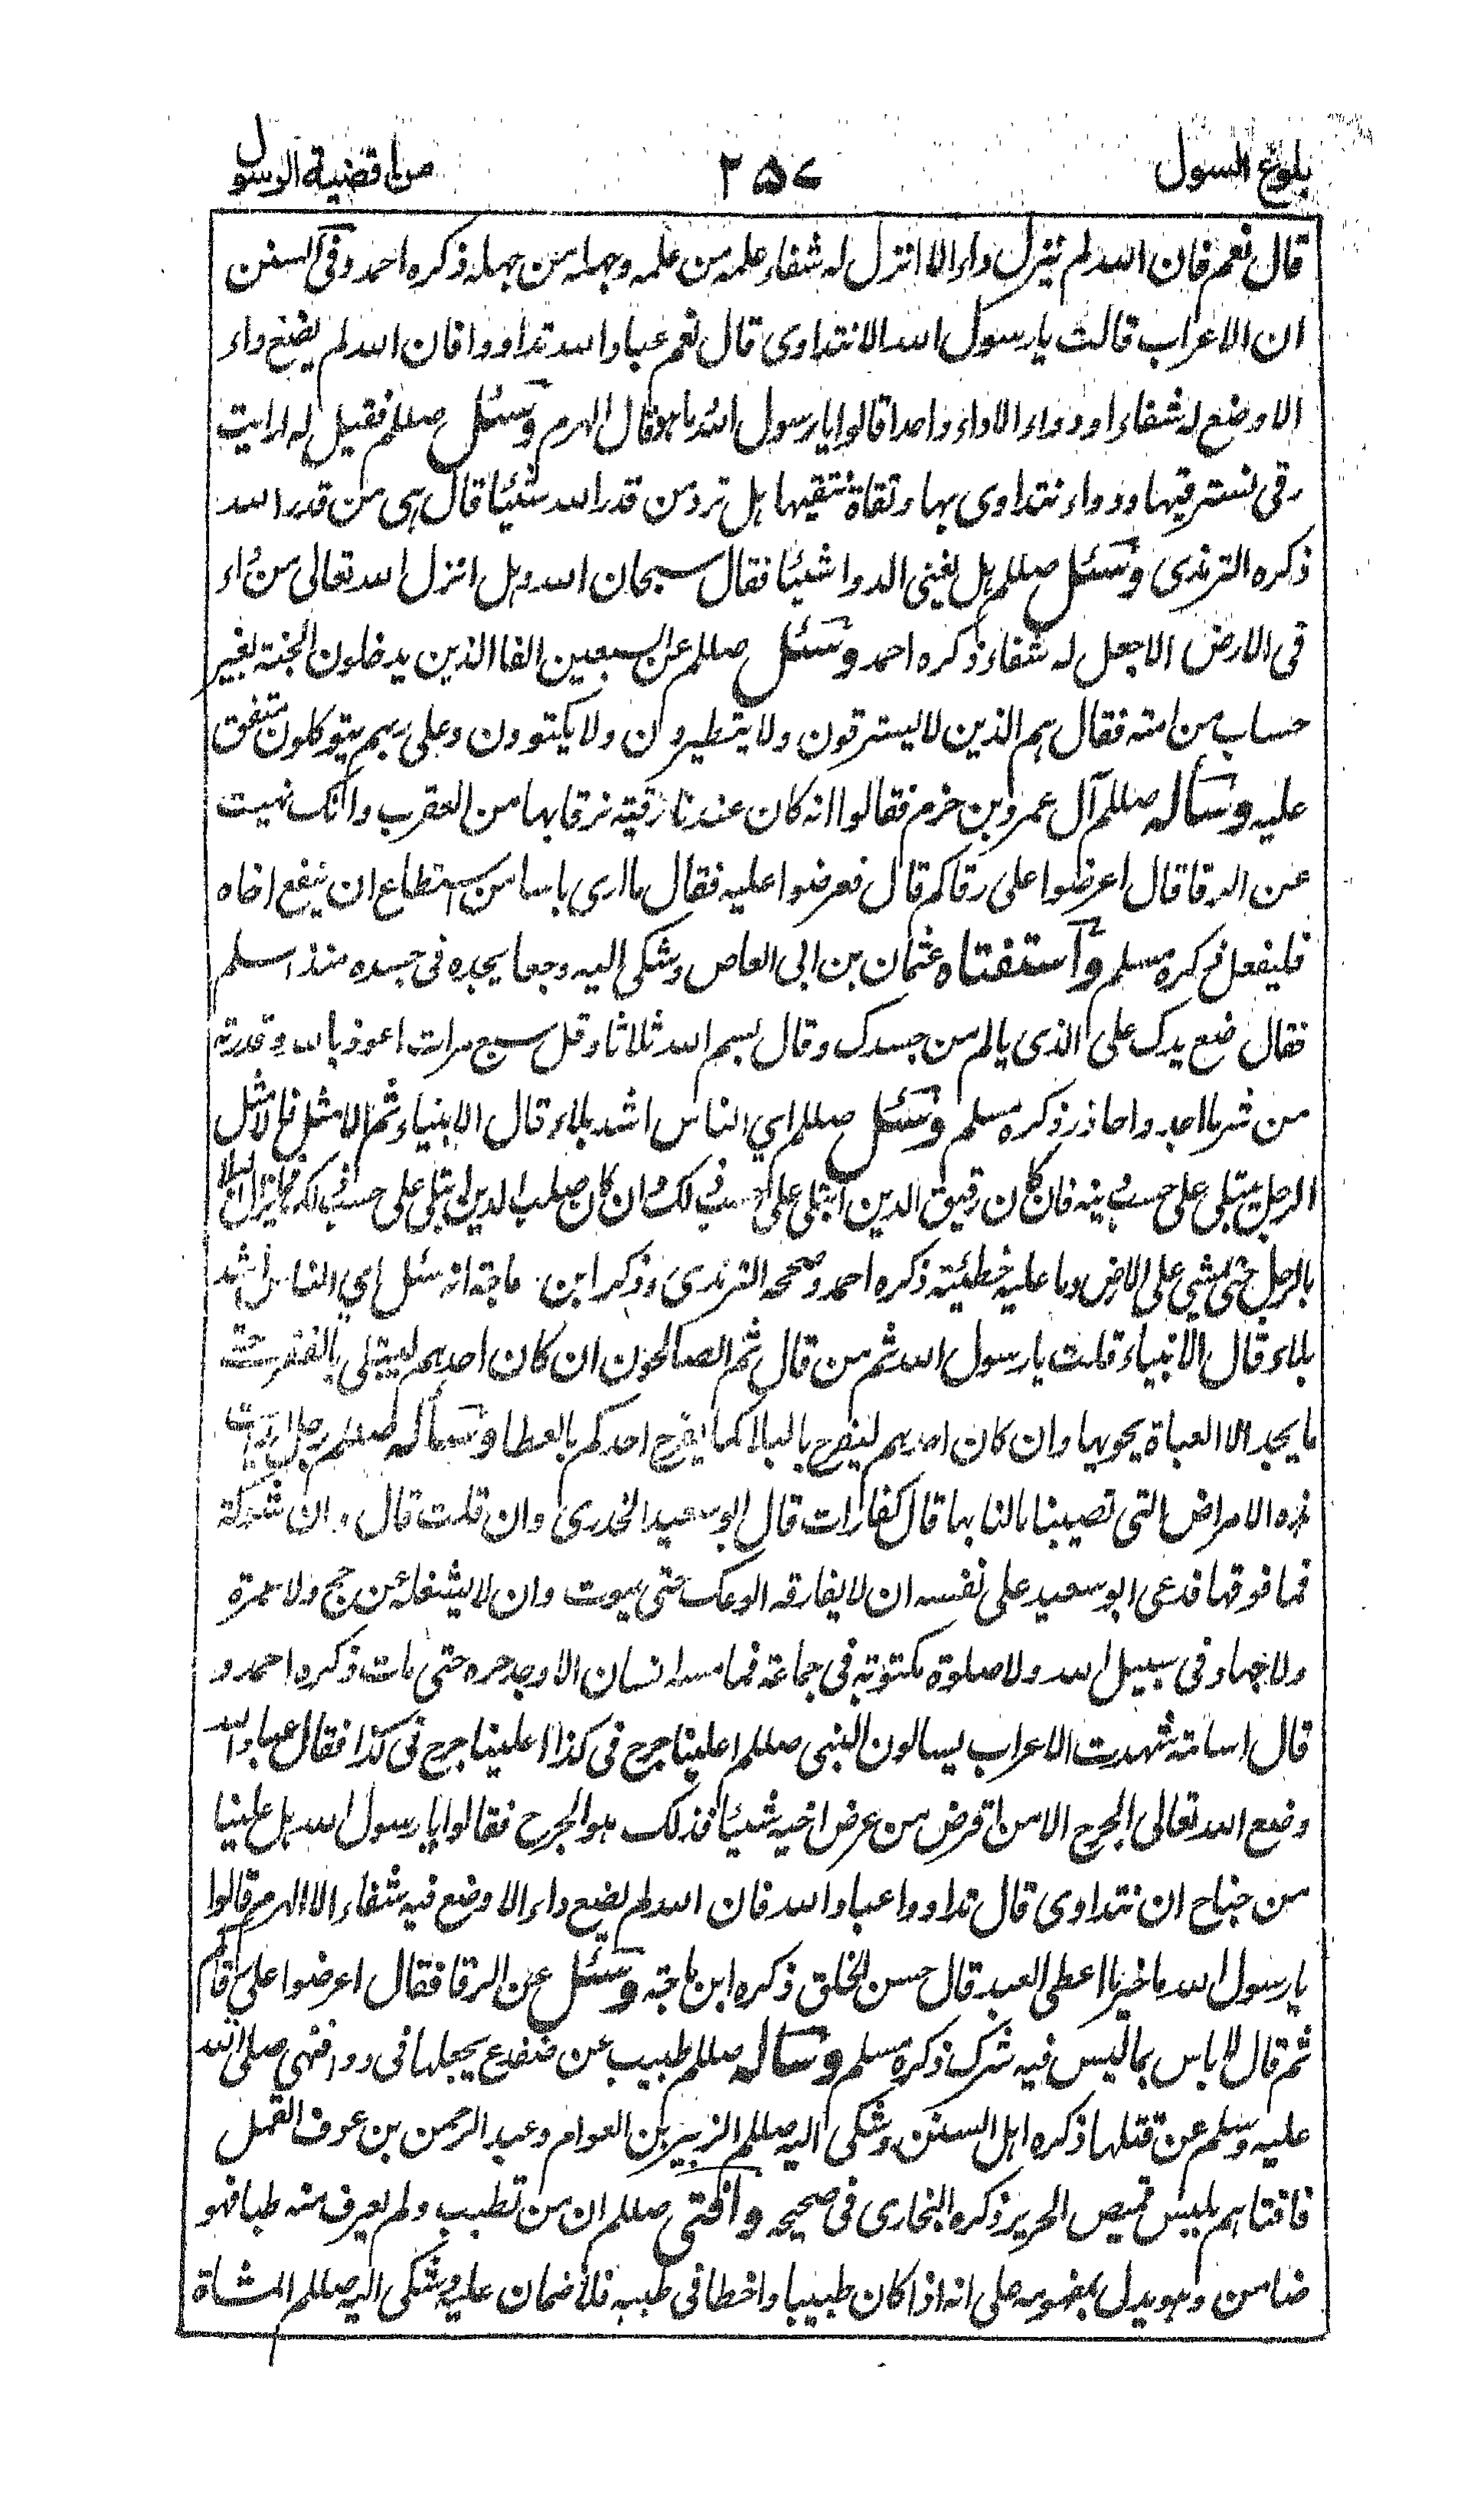 بلوغ السول ٢٥٧ من اقضية الرسول
قال نعم فان الله لم ينزل داء الا انزل له شفاء علمه من علمه وجهله من جهله ذكره احمد وفى السنن
ان الاعراب قالت يا رسول الله الا نتداوى قال نعم عباد الله تداووا فان الله لم يضع داء
الا وضع له شفاء او دواء الا داء واحدا قالوا يا رسول الله ما هو قال الهرم وسئل صللم فقيل له ارايت
رقى نسترقيها ودواء نتداوى بها وتقاة نتقيها هل ترد من قدر الله شيئا قال هى من قدر الله
ذكره الترمذى وسئل صللم هل يغنى الدوا شيئا فقال سبحان الله وهل انزل الله تعالى من داء
فى الارض الا جعل له شفاء ذكره احمد وسئل صللم عن السبعين الفا الذين يدخلون الجنة بغير
حساب من امته فقال هم الذين لا يسترقون ولا يتطيرون ولا يكتوون وعلى ربهم يتوكلون متفق
عليه وساله صللم آل عمرو بن حزم فقالوا انه كان عندنا رقية نرقا بها من العقرب وانك نهيت
عن الرقا قال اعرضوا على رقاكم قال فعرضوا عليه فقال ما ارى باسا من استطاع ان ينفع اخاه
فليفعل ذكره مسلم واستفتاه عثمان بن ابى العاص وشكى اليه وجعا يجده فى جسده منذ اسلم
فقال ضع يدك على الذى يالم من جسدك وقال بسم الله ثلاثا وقل سبع مرات اعوذ بالله وقدرته
من شر ما اجد واحاذر ذكره مسلم وسئل صللم اي الناس اشد بلاء قال الانبياء ثم الامثل فالامثل
الرجل يبتلى على حسب دينه فان كان رقيق الدين ابتلى على حسب ذلك وان كان صلب الدين ابتلى على حسب ذلك فما يزال البلاء
بالرجل حتى يمشي على الارض وما عليه خطيئة ذكره احمد وصححه الترمذى وذكر ابن ماجة انه سئل اي الناس اشد
بلاء قال الانبياء قلت يا رسول الله ثم من قال ثم الصالحون ان كان احدهم ليبتلى بالفقر حتى
ما يجد الا العباة يحويها وان كان احدهم ليفرح بالبلا كما يفرح احدكم بالعطا وساله صللم رجل ارايت
هذه الامراض التى تصيبنا مالنا بها قال كفارات قال ابو سعيد الخدرى وان قلت قال وان شوكة
فما فوقها فدعى ابو سعيد على نفسه ان لا يفارقه الوعك حتى يموت وان لا يشغله عن حج ولا عمرة
ولا جهاد فى سبيل الله ولا صلوة مكتوبة فى جماعة فما مسه انسان الا وجد حره حتى مات ذكره احمد و
قال اسامة شهدت الاعراب يسالون النبى صللم اعلينا جرح فى كذا اعلينا جرح فى كذا فقال عباد الله
وضع الله تعالى الجرح الا من اقرض من عرض اخيه شيئا فذلك هو الجرح فقالوا يا رسول الله هل علينا
من جناح ان نتداوى قال تداووا عباد الله فان الله لم يضع داء الا وضع فيه شفاء الا الهرم قالوا
يا رسول الله ما خير ما اعطى العبد قال حسن الخلق ذكره ابن ماجة وسئل عن الرقا فقال اعرضوا على رقاكم
ثم قال لا باس بما ليس فيه شرك ذكره مسلم وساله صللم طبيب عن ضفدع يجعلها فى دواء فنهى صلى الله
عليه وسلم عن قتلها ذكره اهل السنن وشكى اليه صللم الزبير بن العوام وعبد الرحمن بن عوف القمل
فافتاهم بلبس قميص الحرير ذكره البخارى فى صحيحه وافتى صللم ان من تطبب ولم يعرف منه طبا فهو
ضامن وهو يدل بمفهومه على انه اذا كان طبيبا واخطا فى طبه فلا ضمان عليه وشكى اليه صللم المشاة